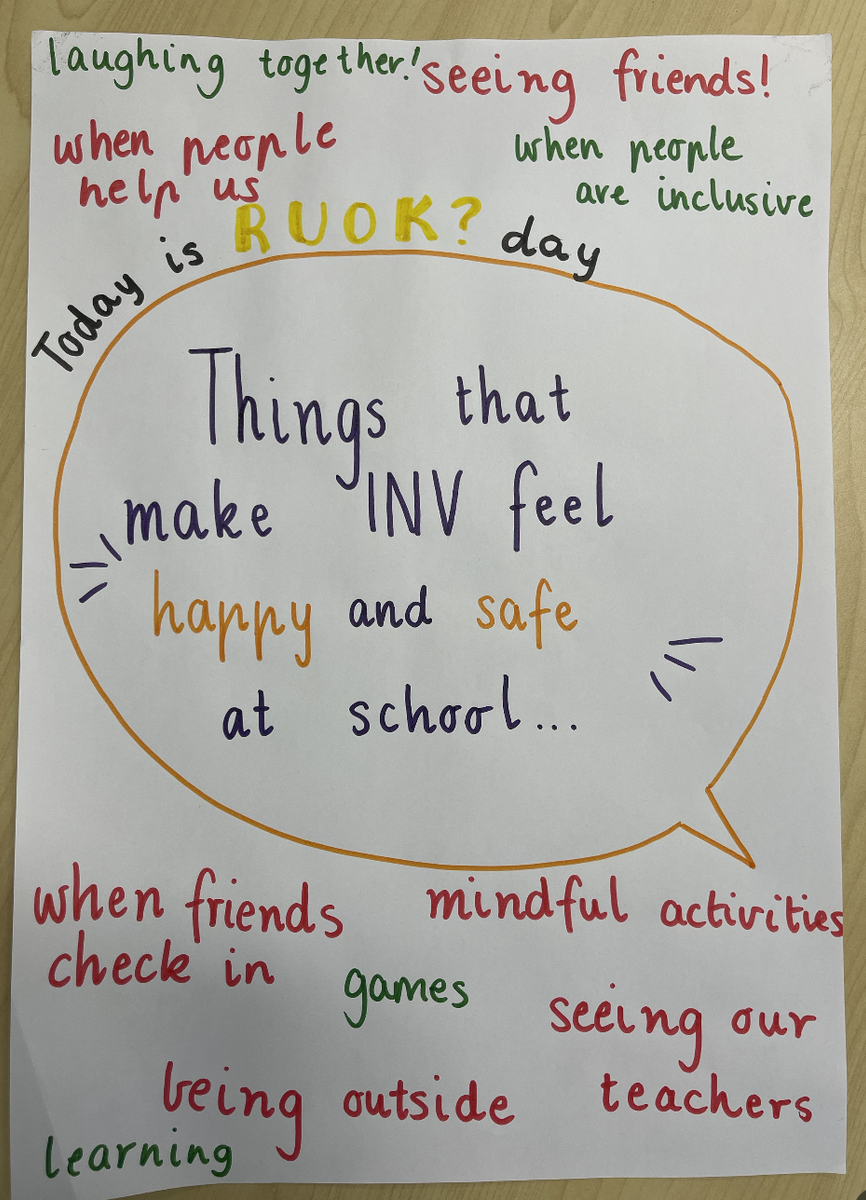 laughing together!
seeing friends!
when people
help us
when people
are inclusive
Today is RUOK? day
Things that
make INV feel
happy and safe
at school...
when friends
check in
mindful activities
games
seeing our
teachers
being outside
learning